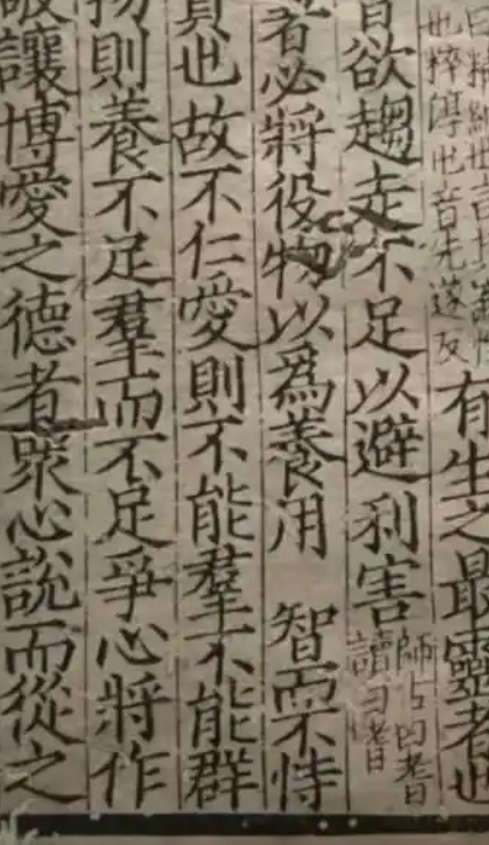 曰精細也言其識性
也粹淳也音先遂反
有生之最靈者也
欲趨走不足以避利害
師古曰耆
讀曰嗜
必將役物以爲養用 智而不恃
貴也故不仁愛則不能羣不能群
物則養不足羣而不足爭心將作
讓博愛之德者衆心說而從之